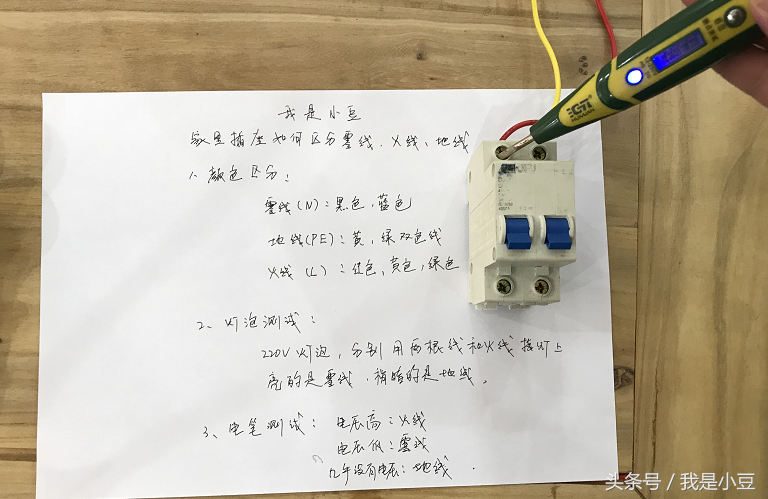 我是小豆
家里插座如何区分零线、火线、地线
1、颜色区分：
零线(N)：黑色，蓝色
地线(PE)：黄，绿双色线
火线(L)：红色，黄色，绿色
2、灯泡测试：
220V灯泡，分别用两根线和火线接灯上
亮的是零线，稍暗的是地线。
3、电笔测试：电压高：火线
电压低：零线
几乎没有电压：地线.
头条号／我是小豆